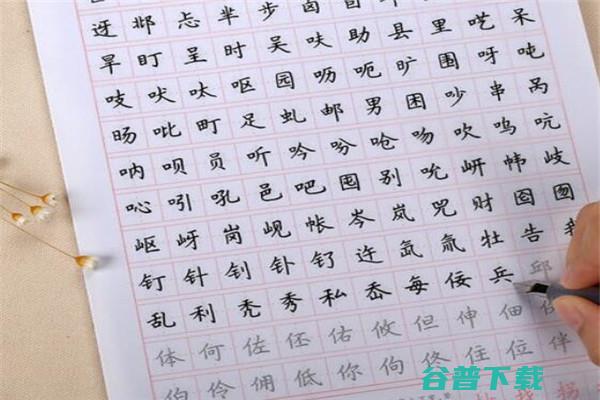 迓邶忐芈步卤
旱盯呈时吴呋助县里呓呆
吱吠呔呕园呖呃旷围呀吨
旸吡町足虬邮男困吵串呙
呐呗员听吟吩呛吻吹呜吭
吣吲吼邑吧囤别吮岍帏岐
岖岈岗岘帐岑岚兕财囵囫
钉针钊钋钌迕氙氚牡告我
乱利秃秀私岙每佞兵邱
体何佐伾佑攸但伸佃
伯伶佣低你佝佟住位伴
谷普下载